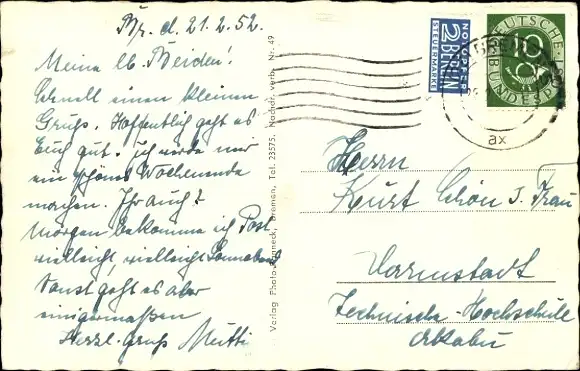 Br. d. 21.2.52.
Meine lb. Beiden!
Schnell einen kleinen
Gruß. Hoffentlich geht es
Euch gut. Ich werde mir
ein schönes Wochenende
machen. Ihr auch?
Morgen bekomme ich Post
vielleicht, vielleicht Sonnabend
Sonst geht es aber
einigermaßen
Herzl. Gruß Mutti
Verlag Photo Bremen, Tel. 23575, Nachdr. verb. Nr. 49
NOTOPFER
2 BERLIN
STEUERMARKE
DEUTSCHE
BUNDESPOST
ax
Herrn
Kurt Schön u. Frau
Darmstadt
Technische-Hochschule